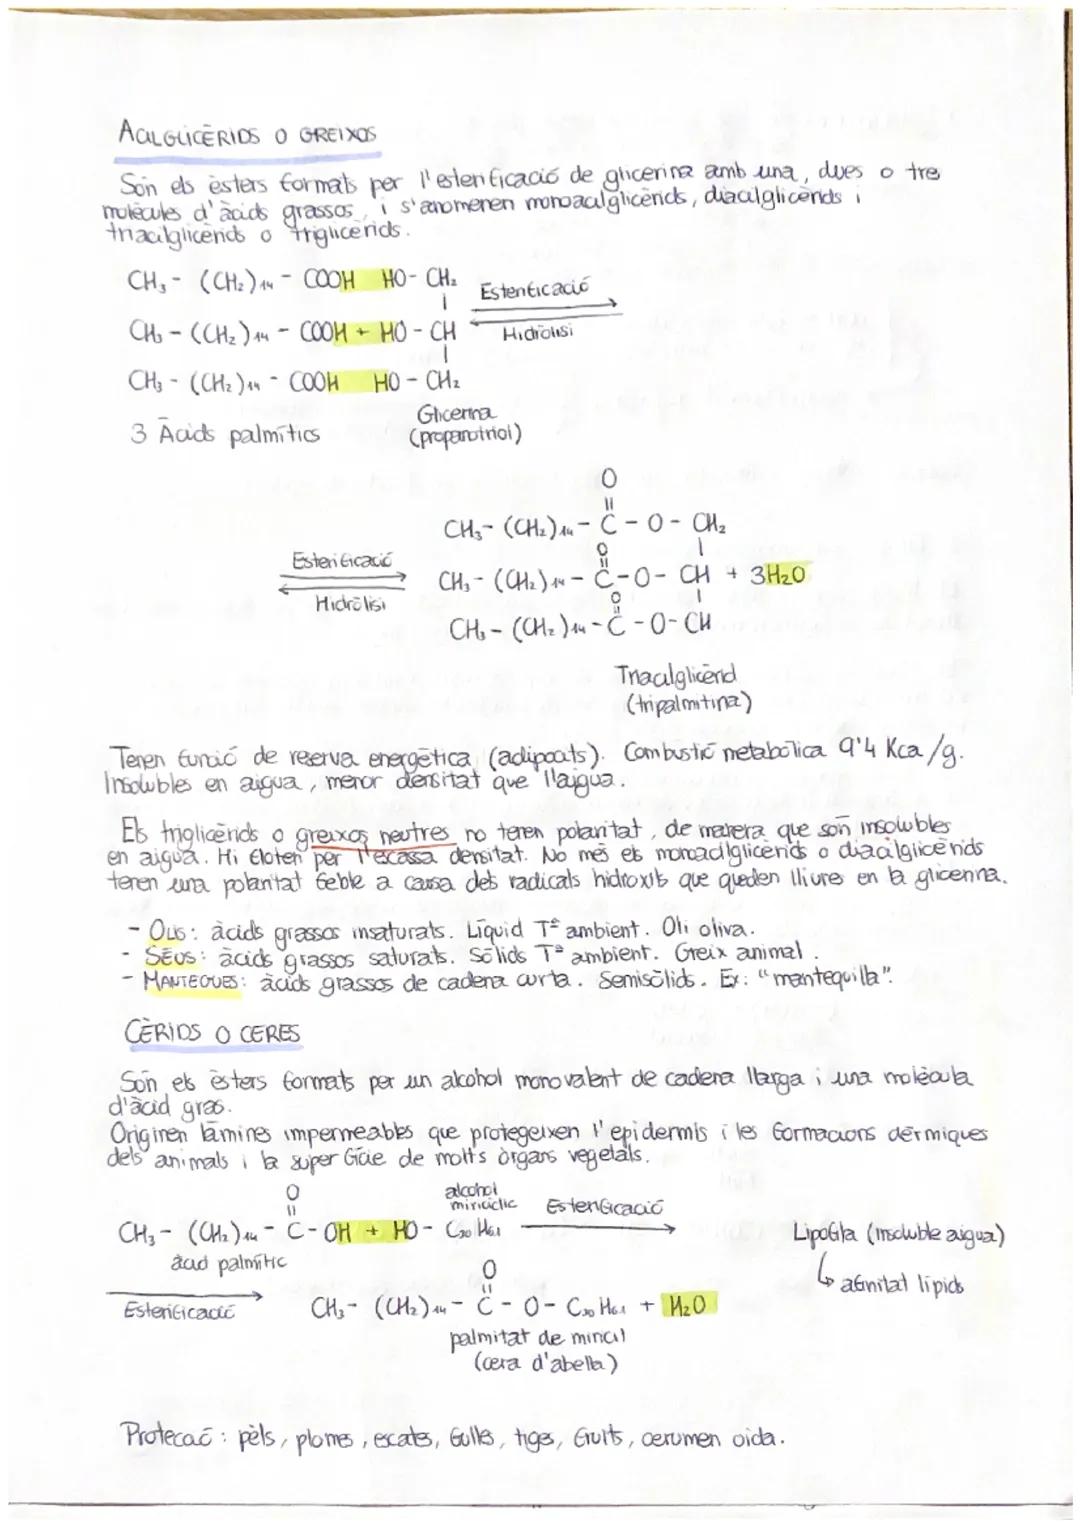 ACILGLICÈRIDS O GREIXOS
Són els èsters formats per l'esterificació de glicerina amb una, dues o tres
molècules d'àcids grassos, i s'anomenen monoacilglicèrids, diacilglicèrids i
triacilglicèrids o triglicèrids.
CH₃ - (CH₂)₁₄ - COOH HO - CH₂
Esterificació
CH₃ - (CH₂)₁₄ - COOH + HO - CH
Hidròlisi
CH₃ - (CH₂)₁₄ - COOH HO - CH₂
3 Àcids palmítics
Glicerina
(propanotriol)
O
CH₃ - (CH₂)₁₄ - C - O - CH₂
Esterificació
O
CH₃ - (CH₂)₁₄ - C - O - CH + 3H₂O
Hidròlisi
O
CH₃ - (CH₂)₁₄ - C - O - CH
Triacilglicèrid
(tripalmitina)
Tenen funció de reserva energètica (adipocits). Combustió metabòlica 9'4 Kca/g.
Insolubles en aigua, menor densitat que l'aigua.
Els triglicèrids o greixos neutres no tenen polaritat, de manera que són insolubles
en aigua. Hi floten per l'escassa densitat. No més els monoacilglicèrids o diacilglicèrids
tenen una polaritat feble a causa dels radicals hidroxils que queden lliures en la glicerina.
- OLIS: àcids grassos insaturats. Líquid Tª ambient. Oli oliva.
- SÈUS: àcids grassos saturats. Sòlids Tª ambient. Greix animal.
- MANTEGUES: àcids grassos de cadena curta. Semisòlids. Ex: "mantequilla".
CÈRIDS O CERES
Són els èsters formats per un alcohol monovalent de cadena llarga i una molècula
d'àcid gras.
Originen làmines impermeables que protegeixen l'epidermis i les formacions dèrmiques
dels animals i la superfície de molts òrgans vegetals.
O
alcohol
miricílic
Esterificació
CH₃ - (CH₂)₁₄ - C - OH + HO - C₃₀H₆₁
Lipòfila (insoluble aigua)
àcid palmític
afinitat lípids
O
Esterificació
CH₃ - (CH₂)₁₄ - C - O - C₃₀H₆₁ + H₂O
palmitat de miricil
(cera d'abella)
Protecció: pèls, plomes, escates, fulles, tiges, fruits, cerumen oïda.